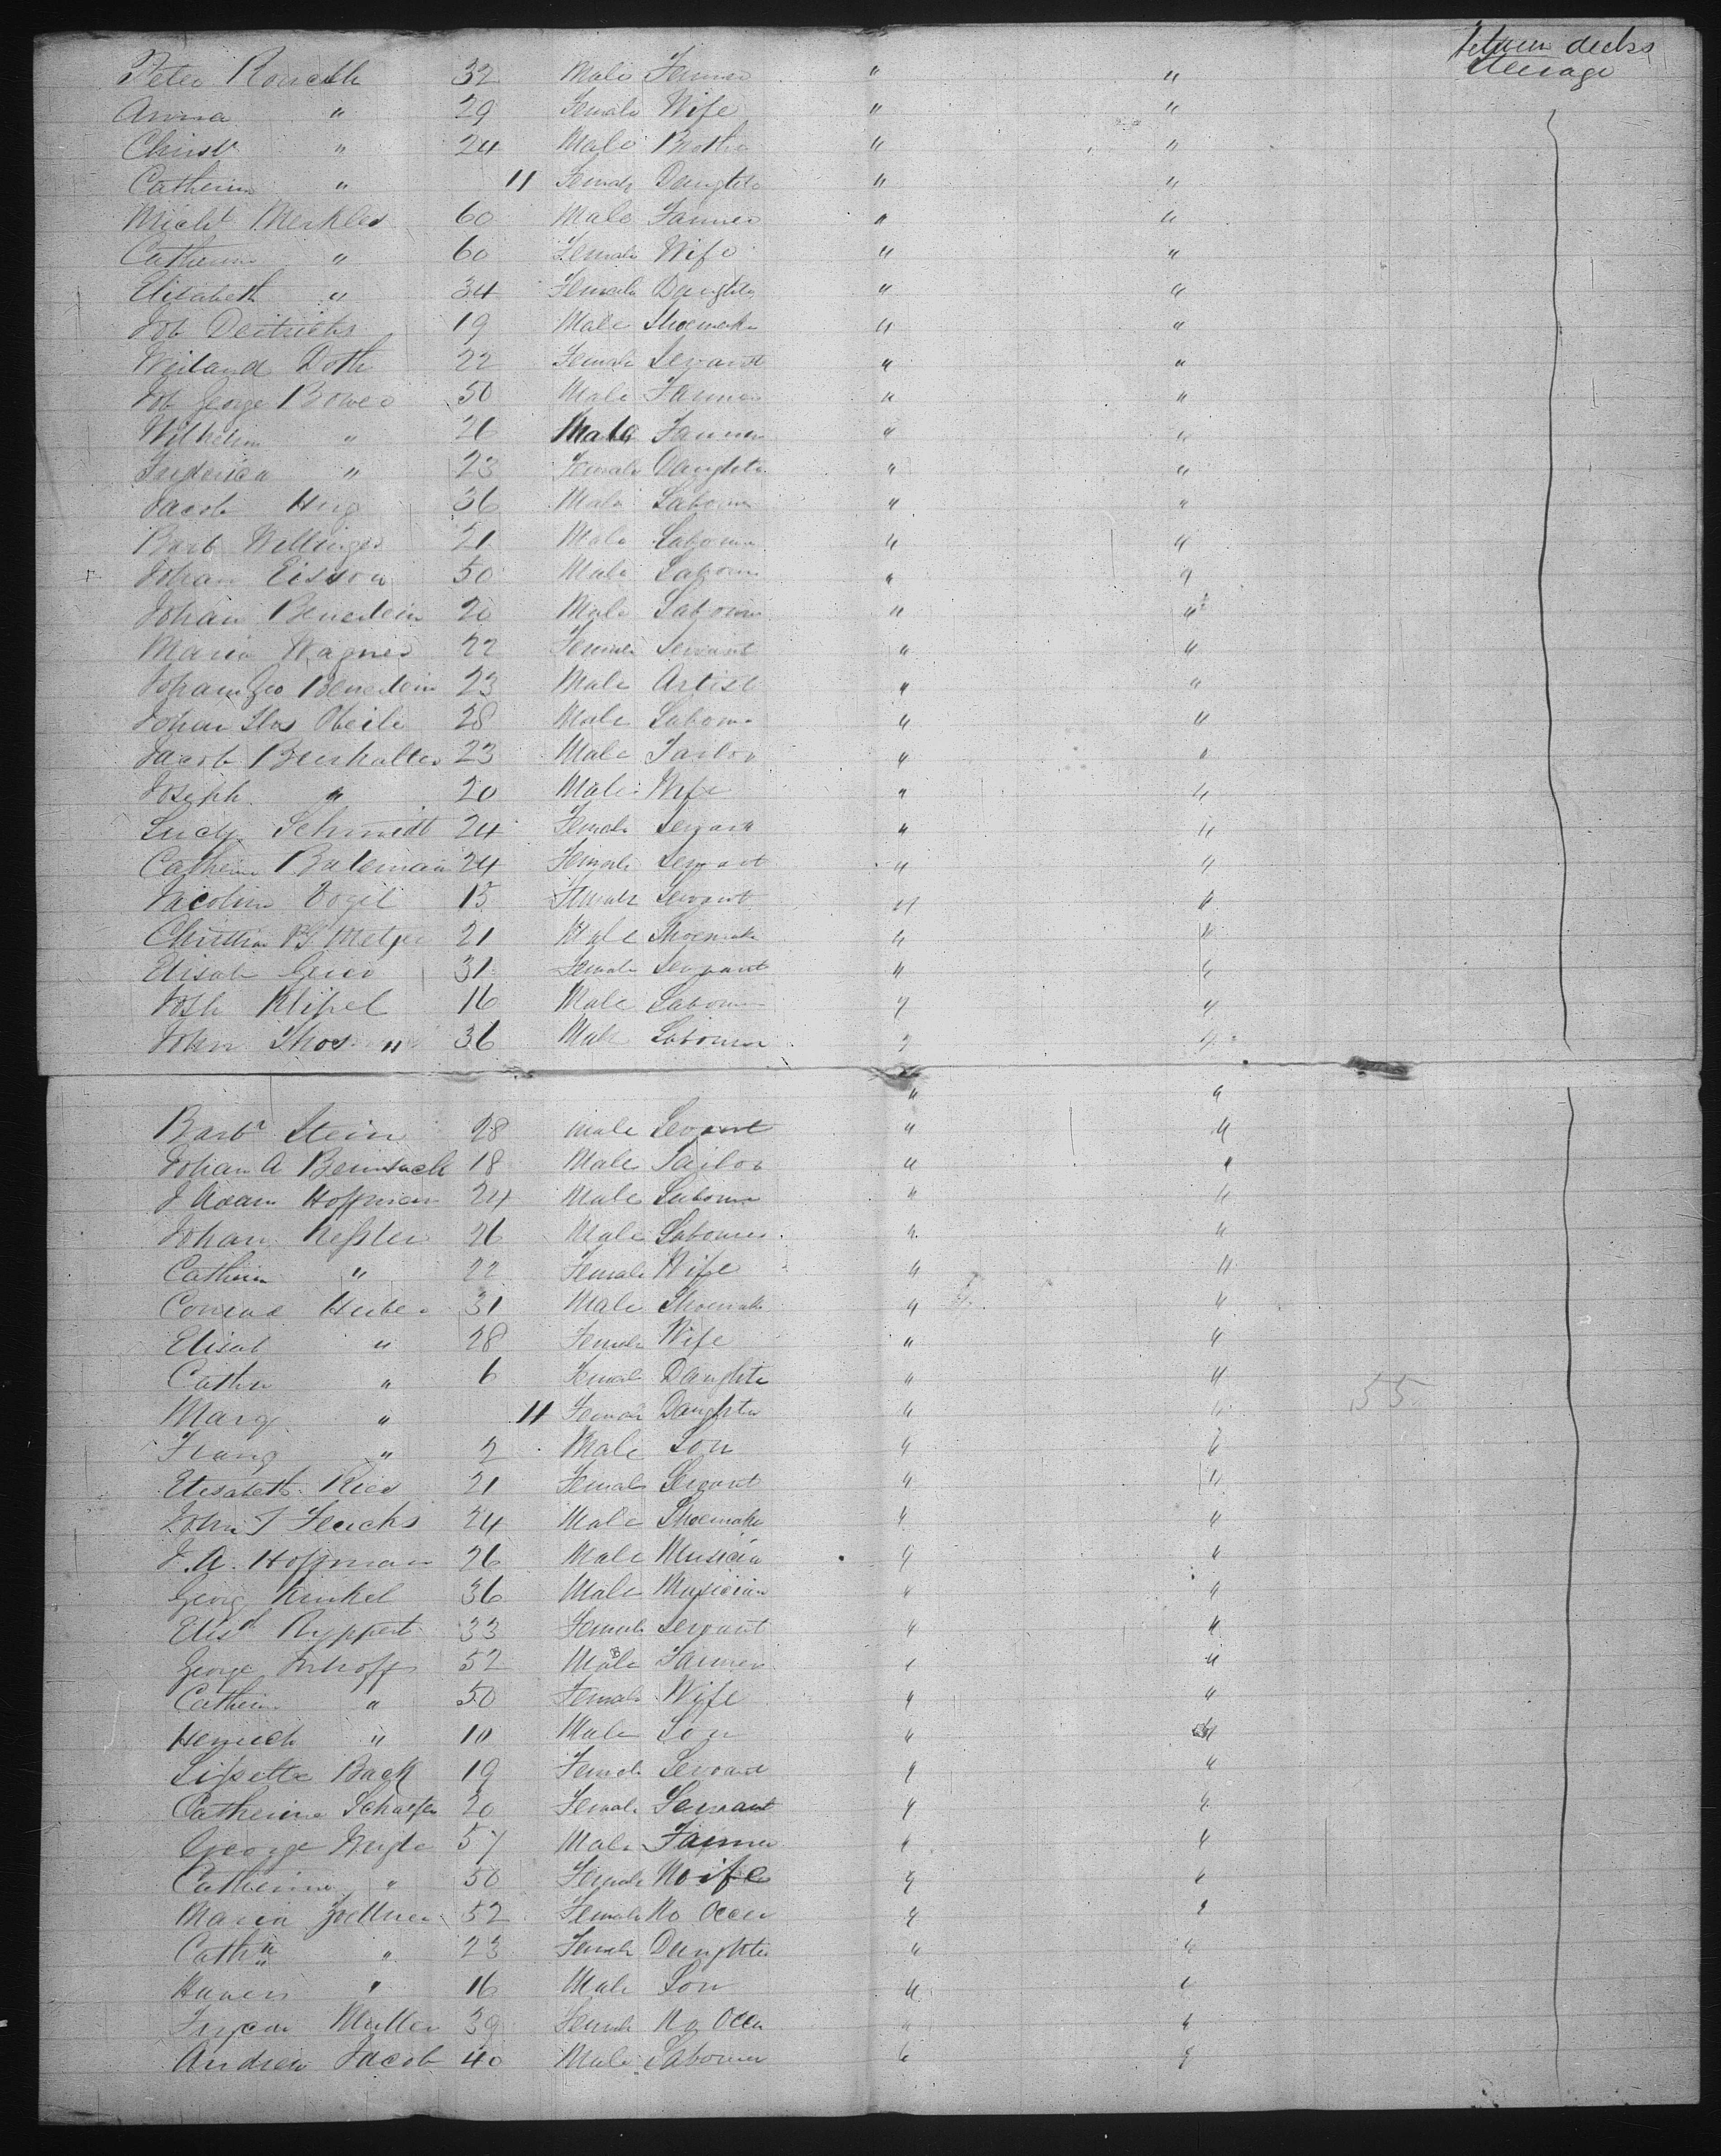 between decks
Peter 32 Male Farmer " " Steerage
Anna " 29 Female Wife " "
Christ " 24 Male Brother " "
Catherin " 11 Female Daughte " "
Michl Merkler 60 Male Farmer " "
Catherin " 60 Female Wife " "
Elisabeth " 34 Female Daughte " "
Joh Deitrichs 19 Male Shoemaker " "
Weiland Doth 22 Female Servant " "
Joh George Bower 50 Male Farmer " "
Wilhelm " 26 Male Farmer " "
Frederica " 23 Female Daughter " "
Jacob Hug 36 Male Labourer " "
Barb Wellinger 21 Male Labourer " "
Johan 50 Male Labourer " "
Johan 20 Male Labourer " "
Maria Wagner 22 Female Servant " "
Johan Geo 23 Male Artist " "
Johan Oberle 28 Male Labourer " "
Jacob 23 Male Tailor " "
Joseph " 20 Male Wife " "
Ludy Schmidt 24 Female Servant " "
Catherin Bateman 24 Female Servant " "
Jacolin Vogel 15 Female Servant " "
Christian Metzger 21 Male Shoemaker " "
Elisab 31 Female Servant " "
Josh Klipel 16 Male Labourer " "
John Thos " 36 Male Labourer " "
" "
Barbr Stein 28 Male Servant " "
Johan A 18 Male Tailor " "
J Adam Hoffman 24 Male Labourer " "
Johan Keßler 26 Male Labourer " "
Catherin " 22 Female Wife " "
Conrad Huber 31 Male Shoemaker " "
Elisab " 28 Female Wife " "
Cathn " 6 Female Daughte " "
Marg " 11 Female Daughte " " 55
Franz " 2 Male Son " "
Elisabeth Ries 21 Female Servant " "
John J Feuchs 24 Male Shoemaker " "
J. A. Hoffman 26 Male Musicia " "
Georg Kunkel 36 Male Musician " "
Elisth Ruppert 33 Female Servant " "
George Imhoff 52 Male Farmer " "
Catherin " 50 Female Wife " "
Henrich " 10 Male Son " "
Lißette Back 19 Female Servant " "
Catherine Schaefer 20 Female Servant " "
George 57 Male Farmer " "
Catherine " 50 Female Wife " "
Maria Zoellner 52 Female No Occu " "
Cathn " 23 Female Daughte " "
" 16 Male Son " "
Muller 39 Female No Occu " "
Andrew Jacob 40 Male Labourer " "